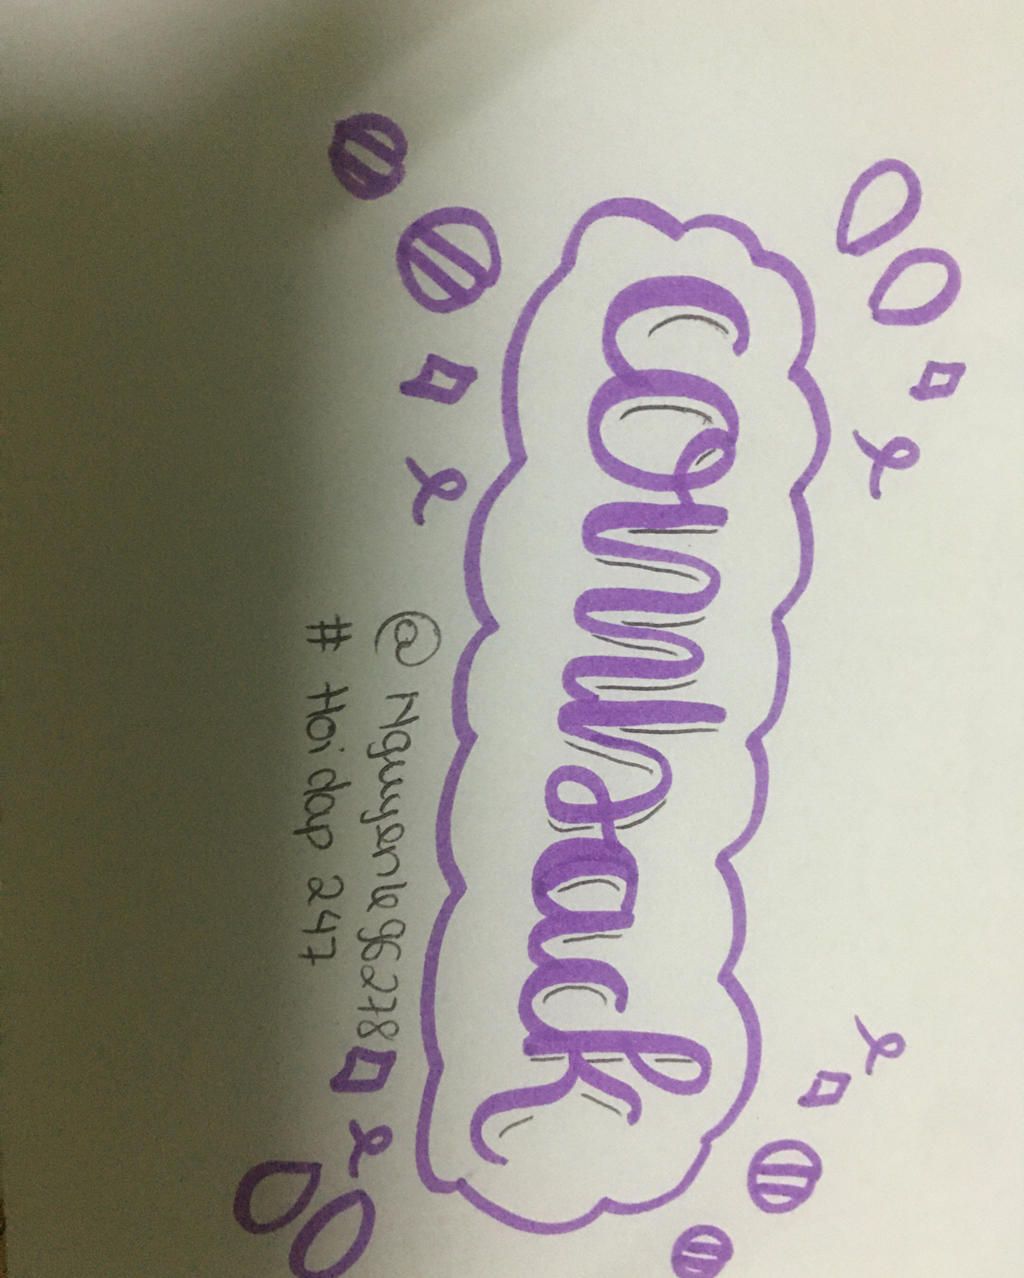 Comback
@Nguyenle96278
# Hoidap 247